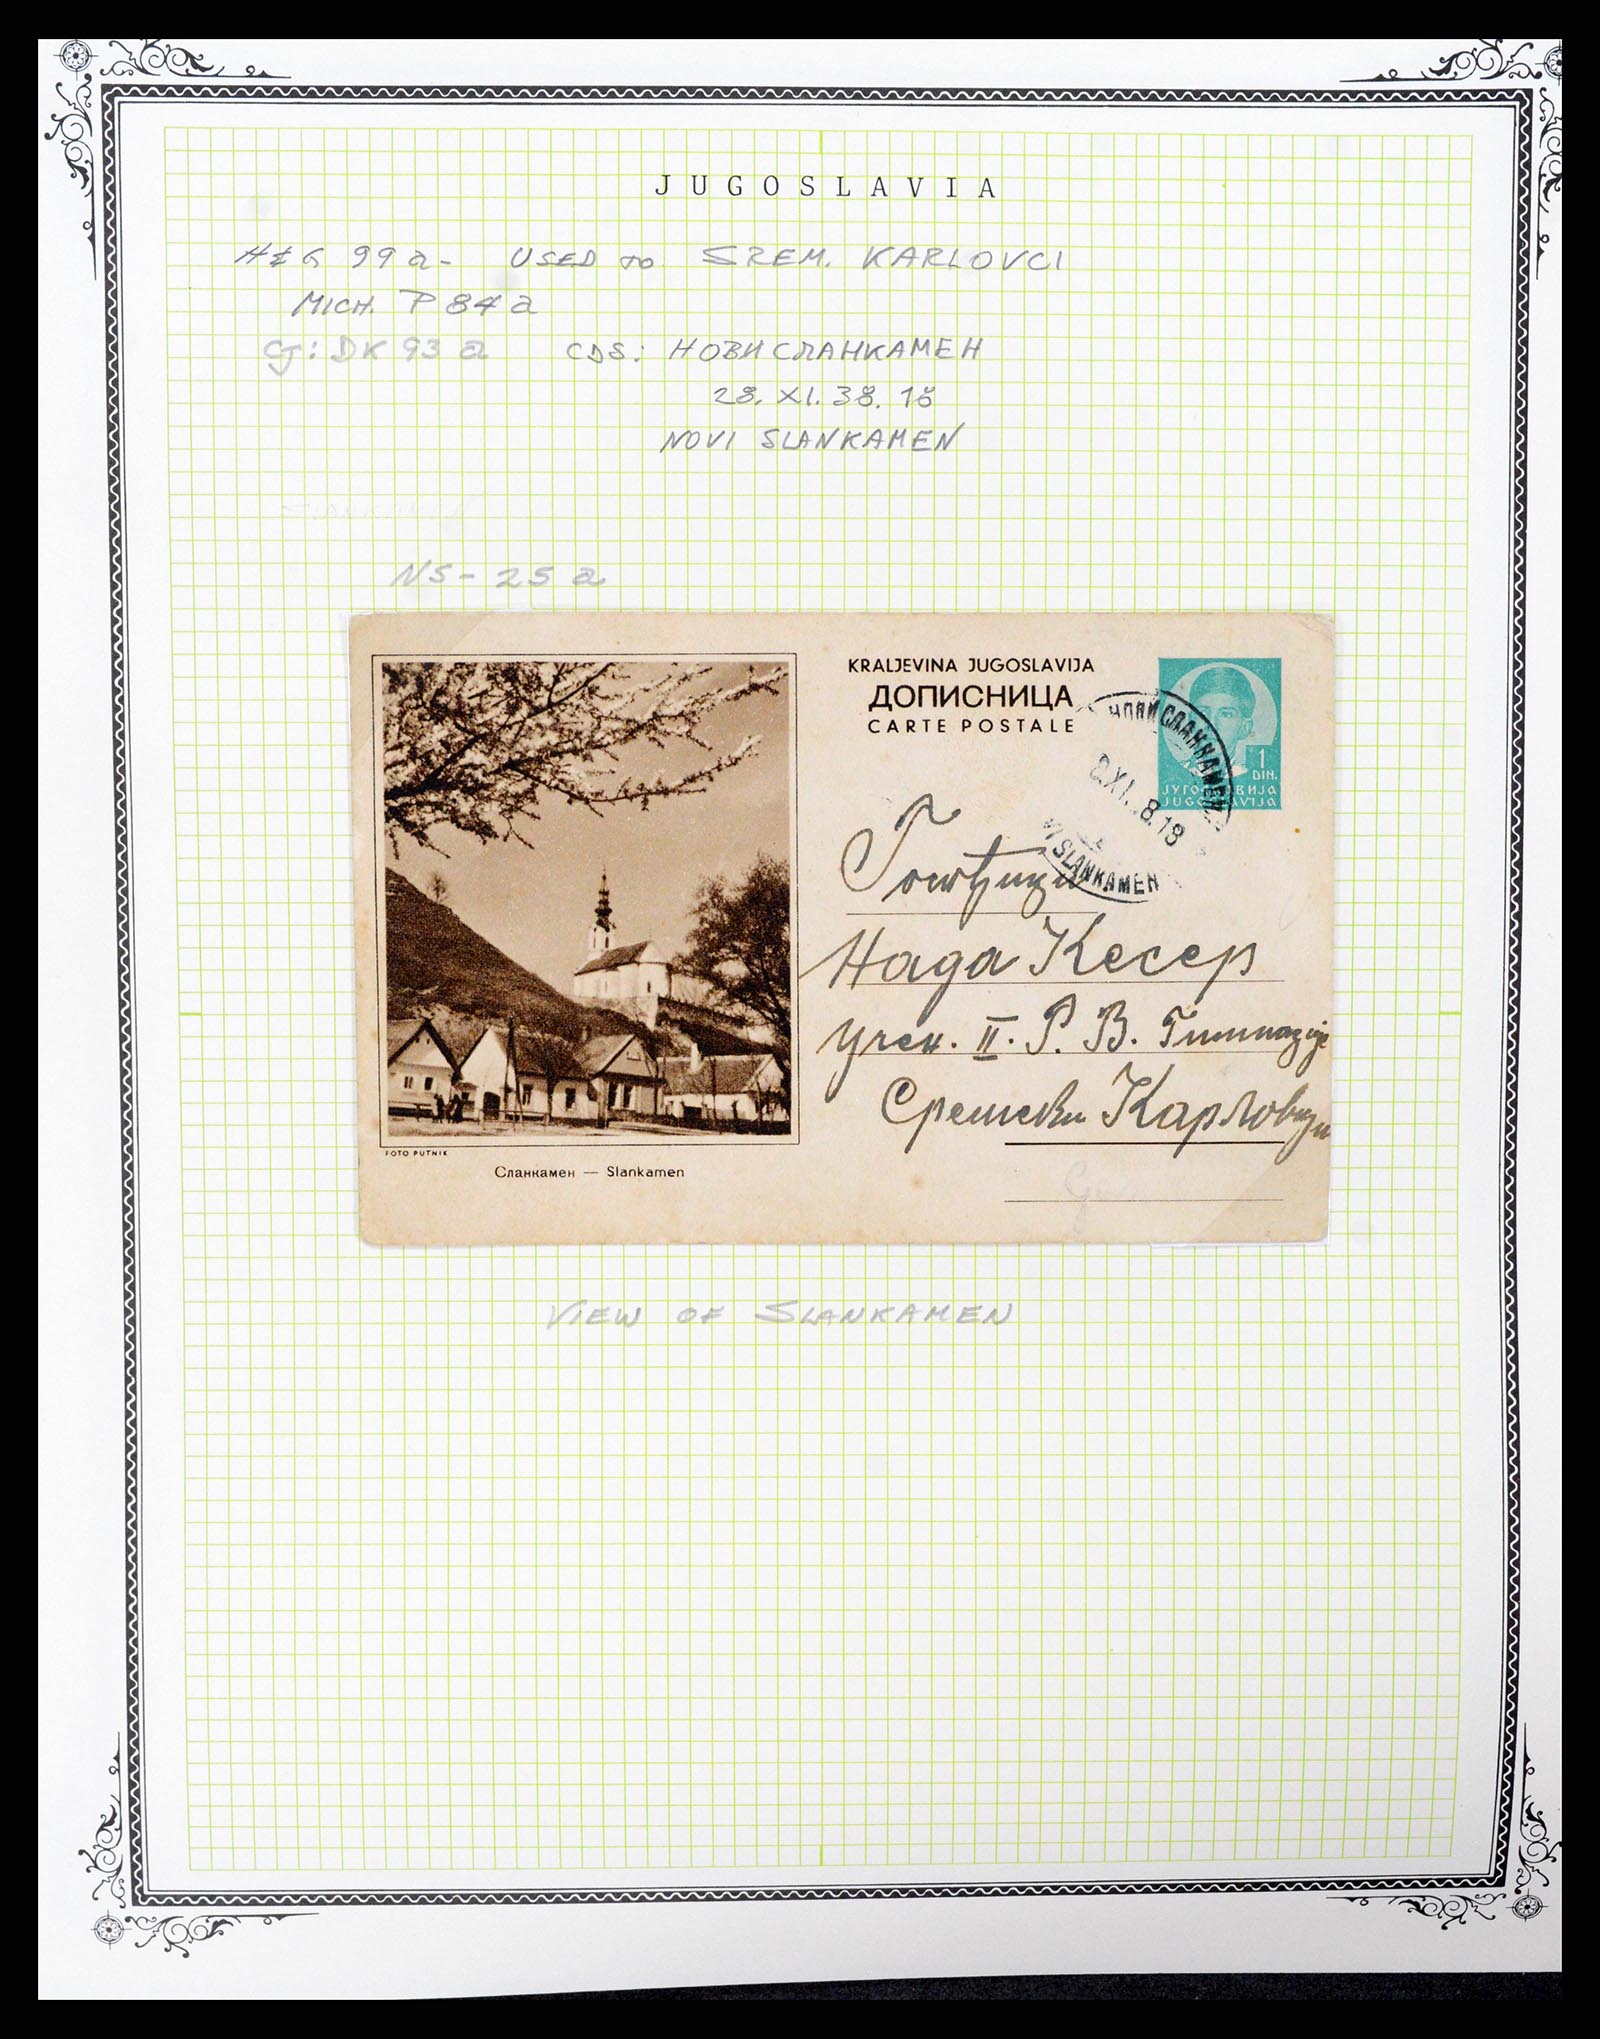 JUGOSLAVIA
H&G 99a - USED TO SREM. KARLOVCI
MICH. P 84 a
CJ: DK 93 a CDS: НОВИ СЛАНКАМЕН
28. XI. 38. 18
NOVI SLANKAMEN
SLANKAMEN
NS - 25 a
KRALJEVINA JUGOSLAVIJA
ДОПИСНИЦА
CARTE POSTALE
1
DIN.
ЈУГОСЛАВИЈА
JUGOSLAVIJA
НОВИ СЛАНКАМЕН
XI. 8.18
SLANKAMEN
Госпђици
Нада Кесер
учен. II. Р. В. Гимназије
Сремски Карловци
FOTO PUTNIK
Сланкамен — Slankamen
VIEW OF SLANKAMEN